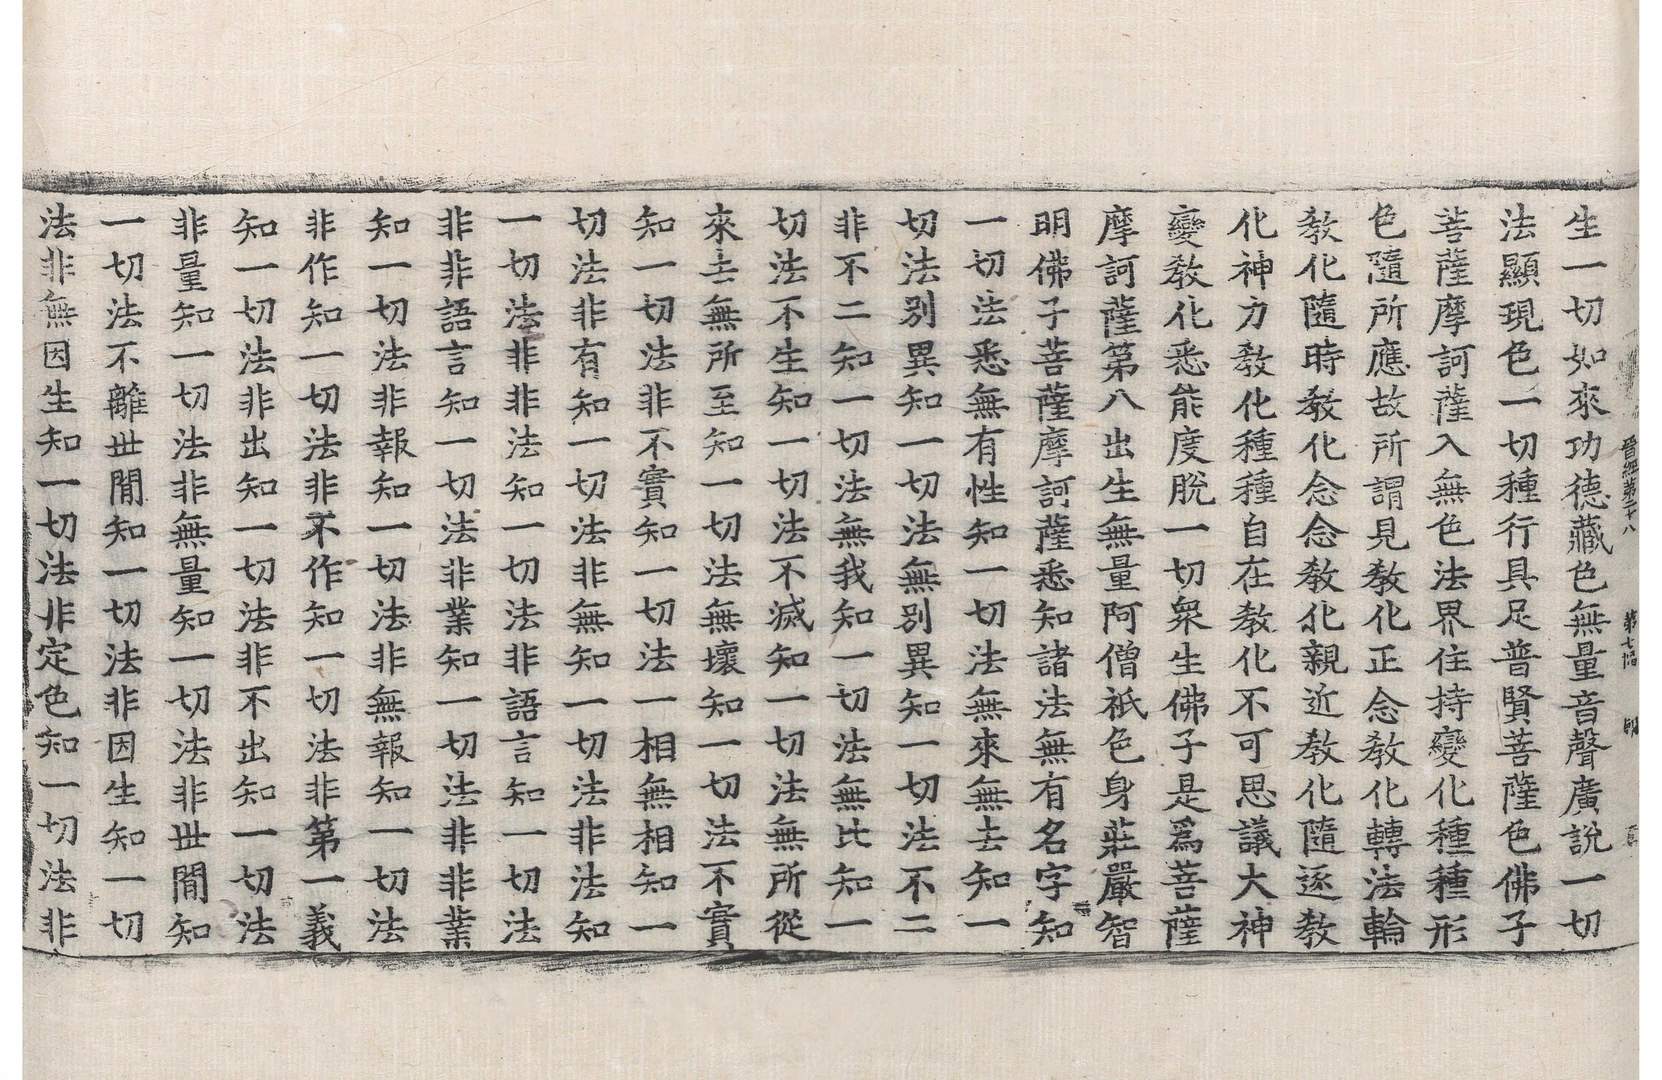 晉經第二十八 第七幅
生一切如來功德藏色無量音聲廣說一切
法顯現色一切種行具足普賢菩薩色佛子
菩薩摩訶薩入無色法界住持變化種種形
色隨所應故所謂見教化正念教化轉法輪
教化隨時教化念念教化親近教化隨逐教
化神力教化種種自在教化不可思議大神
變教化悉能度脫一切衆生佛子是爲菩薩
摩訶薩第八出生無量阿僧祇色身莊嚴智
明佛子菩薩摩訶薩悉知諸法無有名字知
一切法悉無有性知一切法無來無去知一
切法別異知一切法無別異知一切法不二
非不二知一切法無我知一切法無比知一
切法不生知一切法不滅知一切法無所從
來去無所至知一切法無壞知一切法不實
知一切法非不實知一切法一相無相知一
切法非有知一切法非無知一切法非法知
一切法非非法知一切法非語言知一切法
非非語言知一切法非業知一切法非非業
知一切法非報知一切法非無報知一切法
非作知一切法非不作知一切法非第一義
知一切法非出知一切法非不出知一切法
非量知一切法非無量知一切法非世間知
一切法不離世間知一切法非因生知一切
法非無因生知一切法非定色知一切法非